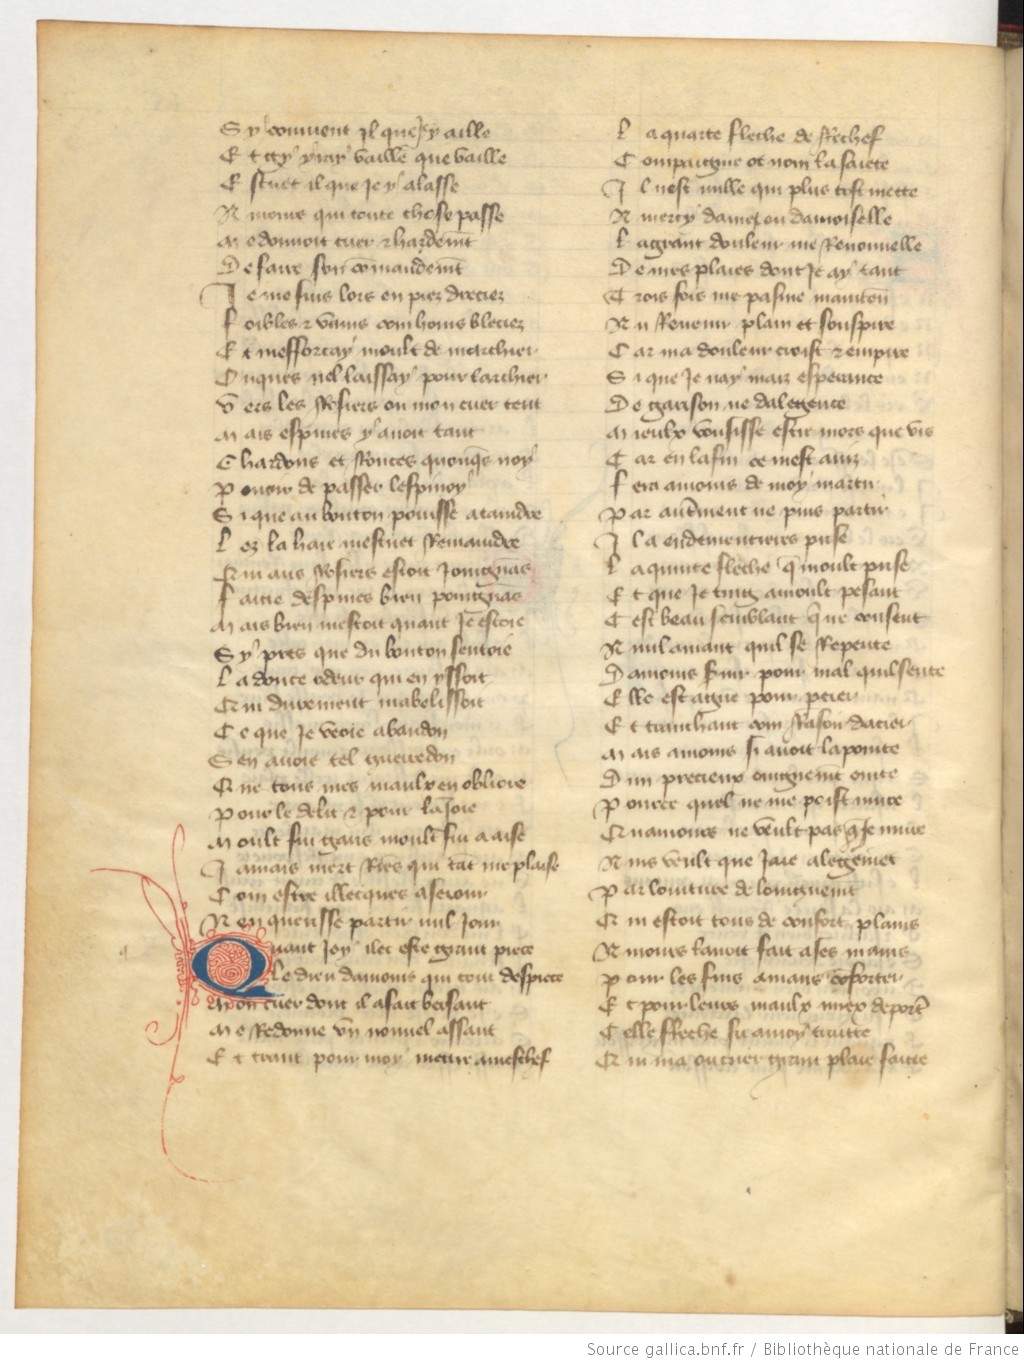 S y couuient il que jy aille
E t gy yray vaille que vaille
E stuet il que je y alasse
N moins qui toute chose passe
M e donnoit cuer & hardemt
D e faire son comandemt
J e me suis lors en piez dreciez
F oibles & vains com homs bleciez
E t mefforcay moult de marchier
O nques nel laissay pour larchier
V ers les rosiers ou mon cuer tent
M ais espines y auoit tant
C hardons et ronces quonqs noy
P ouoir de passer lespinoy
S i que au bouton peusse ataindre
L ez la haie mestuet remaindre
Q ui aus rosiers estoit joingnas
F aicte despines bien poingnas
M ais bien mestoit quant je estoie
S y pres que du bouton sentoie
L a douce odeur qui en yssoit
Q ui durement mabelissoit
C e que je veoie abandon
S en auoie tel guerredon
Q ue tous mes maulx en oblioie
P our le delit & pour la joie
M oult fui garis moult fui a aise
J amais niert riés qui tāt me plaise
C om estre illecques a seiour
N en queisse partir nul jour
Q uant joy ilec este grant piece
L e dieu damours qui tout despiece
M on cuer dont il a fait bersaut
M e redonne vn nouuel assaut
E t trait pour moy mettre a meschef
L a quarte fleche de rechef
C ompaignie ot nom la saiete
J l nest nulle qui plus tost mette
A mercy dame ou damoiselle
L a grant douleur me renouuelle
D e mes plaies dont je ay tant
T rois fois me pasme maintn
A u reuenir plain et souspire
C ar ma douleur croist & empire
S i que je nay maiz esperance
D e garison ne dalegence
M ieulx vousisse estre mors que vis
C ar en la fin ce mest auiz
F era amours de moy martir
P ar autement ne puis partir
J l a endementieres prise
L a quinte fleche q moult prise
E t que je tieng a moult pesant
C est beau semblant q ne consent
N ul amant quil se repente
D amours seruir pour mal quil sente
E lle est ague pour percer
E t trenchant com rason dacier
M ais amours si auoit la pointe
D un precieux oingnemt ointe
P ource quel ne me poist nuire
Q uamours ne veult pas q je muire
A ins veult que jaie alegemet
P ar lointure de loingnemt
Q ui estoit tous de confort plains
A mours lauoit fait a ses mains
P our les fins amans coforter
E t pour leurs maulx miex deporter
C elle fleche su a moy traitte
Q ui ma ou cuer grant plaie faicte